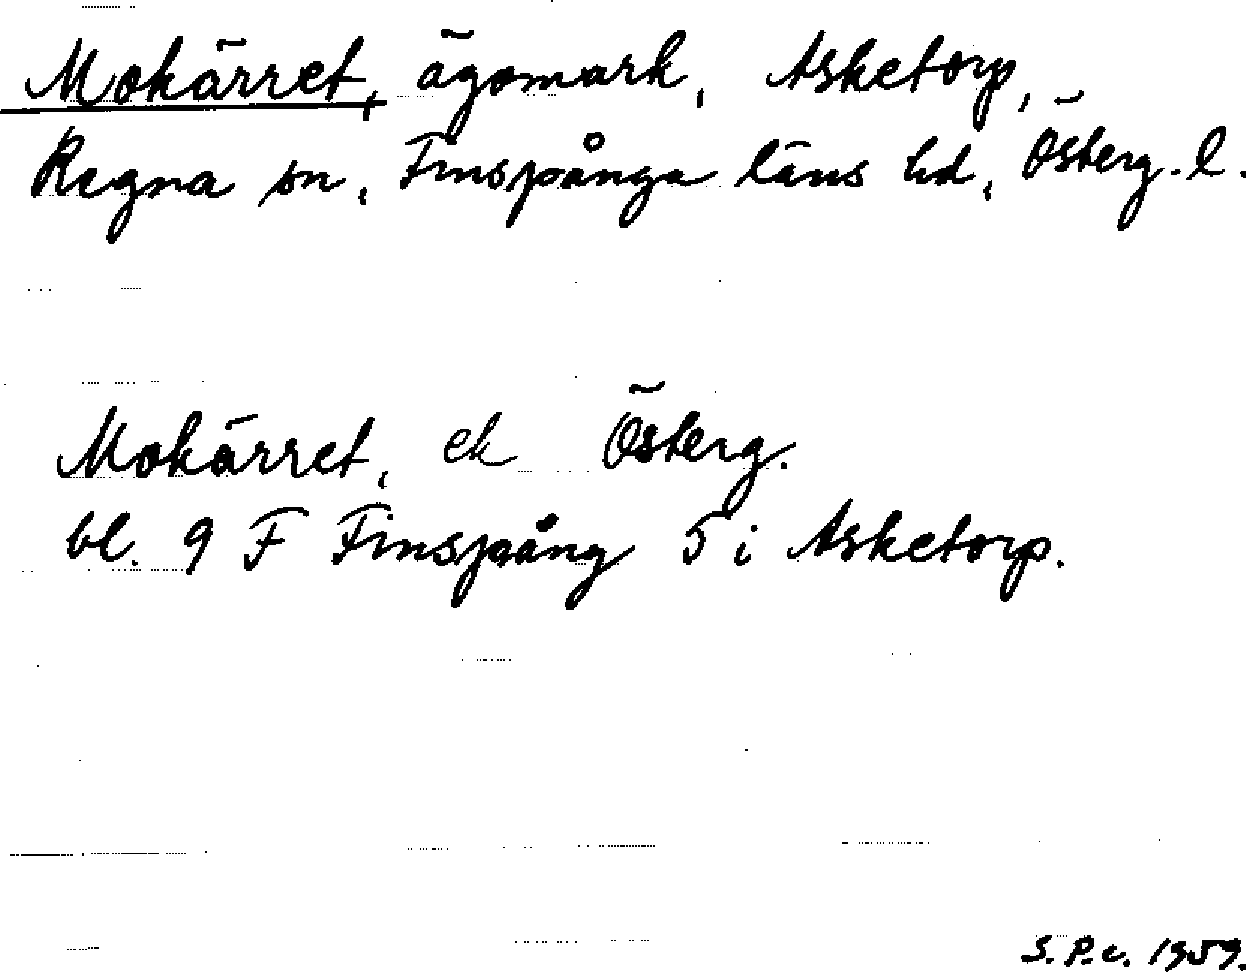 Mokärret, ägomark, Asketorp,
Regna sn, Finspånga läns hd, Österg. l.
Mokärret, ek Österg.
bl. 9 F Finspång 5 i Asketorp.
S. P. c. 1959.